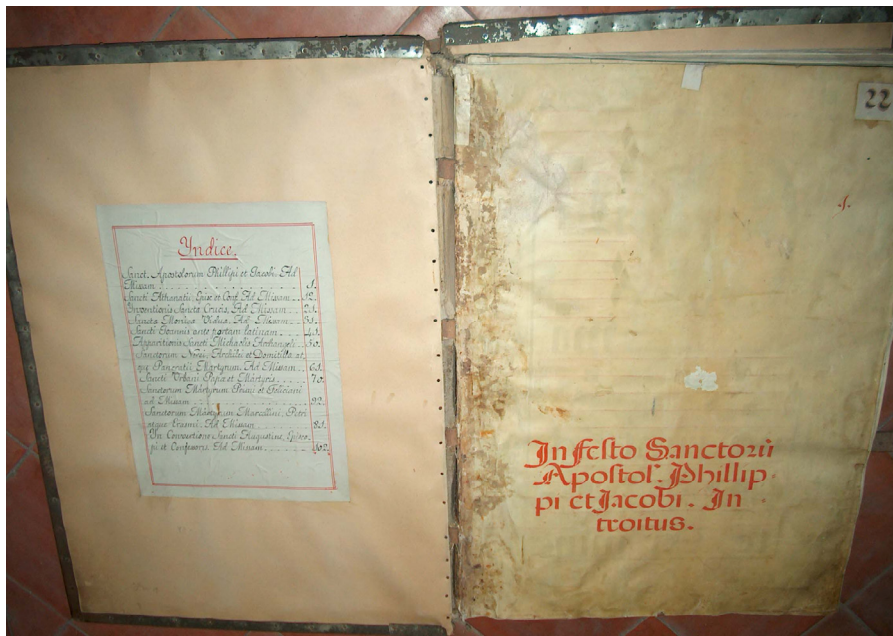 Yndice.
Sanct. Apostolorum Phillipi et Jacobi. Ad
Missam 1.
Sancti Athanatii, Epis. et Conf. Ad Missam 12.
Inventionis Sancta Crucis, Ad Missam 21.
Sancta Monica Vidua. Ad Missam 31.
Sancti Joannis ante portam latinam 41.
Apparitionis Sancti Michaelis Archangeli 50.
Sanctorum Nerei, Archilei et Domitilla at
que Pancratii Martyrum, Ad Missam 61.
Sancti Urbani Papæ et Martyris 70.
Sanctorum Martyrum Primi et Feliciani
ad Missam 92.
Sanctorum Martyrum Marcellini, Petri
atque Erasmi. Ad Missam 81.
In Conversione Sancti Augustini, Episco-
pi et Confesoris. Ad Missam 102.
22
1.
In festo Sanctorũ
Apostol. Phillip
pi et Jacobi. In
troitus.